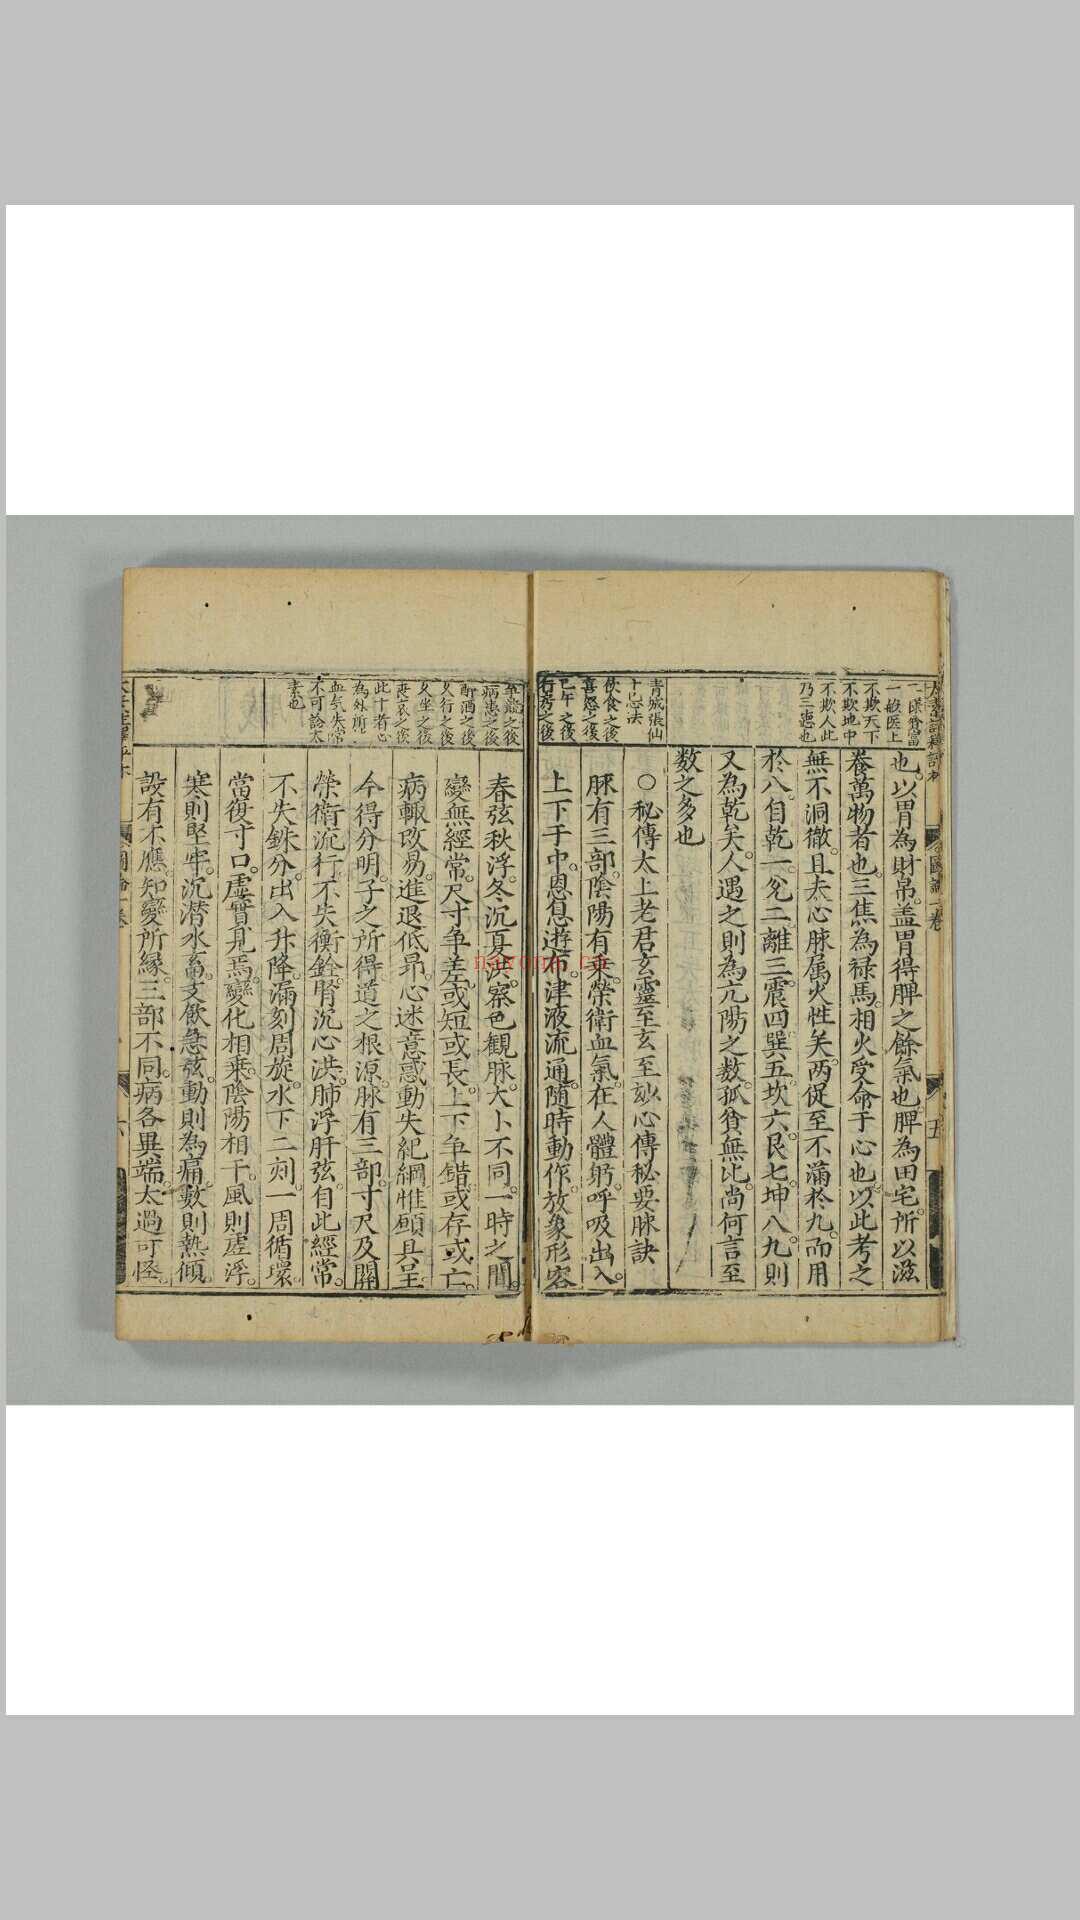 也以胃為財帛蓋胃得脾之餘氣也脾為田宅所以滋
養萬物者也三焦為禄馬相火受命于心也以此考之
無不洞徹且夫心脉属火性矣两促至不滿於九而用
於八自乾一兊二離三震四巽五坎六艮七坤八九則
又為乾矣人遇之則為亢陽之数孤貧無比尚何言至
数之多也
○秘傳太上老君玄靈至玄至玅心傳秘要脉訣
脉有三部陰陽有乗榮衛血氣在人體躬呼吸出入
上下于中恩息遊布津液流通随時動作放象形容
一般医上
不欺天下
不欺地中
不欺人此
乃三德也
青城張仙
十忌法
飲食之後
喜怒之後
已午之後
行房之後
春弦秋浮冬沉夏洪察色観脉大小不同一時之間
變無經常尺寸争差或短或長上下争錯或存或亡
病輙改易進退低昂心迷意惑動失紀綱惟頋具呈
今得分明子之所得道之根源脉有三部寸尺及關
榮衛流行不失衡銓腎沉心洪肺浮肝弦自此經常
不失銖分出入升降漏刻周旋水下二刻一周循環
當復寸口虚實見焉變化相乗陰陽相干風則虗浮
寒則堅牢沉潜水畜支飲急弦動則為痛數則熱傾
設有不應知變所縁三部不同病各異端太過可怪
病患之後
酧酒之後
久行之後
久坐之後
更衣之後
此十者心
為外所
血气失常
不可診太
素也
navona.cn